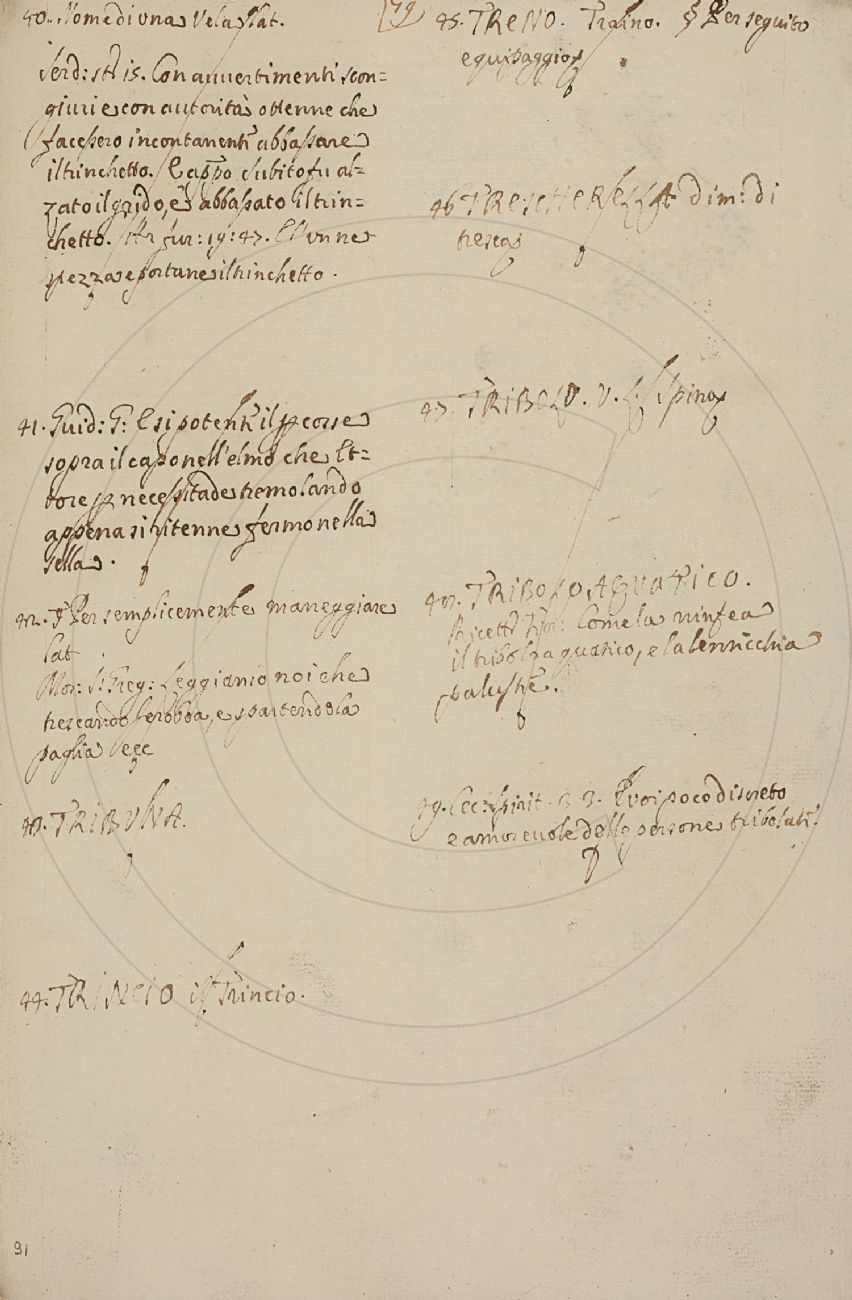 40. Nome di una Vela lat.
Serd: st: 15. Con avvertimenti scon=
giuri e con autorità ottenne che
facessero incontanenti abbassare
il trinchetto. E appo subito fu al=
zato il grido, e abbassato il trin=
chetto. Ar. fur: 19: 47. E un ne
spezza e portane il trinchetto.
41. Guid: G: E si potenti il percosse
sopra il capo nell'elmo che Et=
tore per necessitade tremolando
appena si ritenne fermo nella
sella.
42. § Per semplicemente maneggiare
lat
Mor: S: Greg: Leggiamo noi che
trescando le robba, e partendo la
paglia ecc
43. TRIBUNA.
44. TRINCIO il Trincio.
79
45. TRENO. Traino. § Per seguito
equipaggio
46 TRESCHERELLA dim: di
tresca
47. TRIBOLO. V. L. Spina
48. TRIBOLO AQUATICO.
Ricett: Fior: Come la ninfea
il tribolo aquatico, e la lenticchia
palustre.
49. Lec: Spirit. 33. E voi poco discreto
e amorevole delle persone tribolati!
91